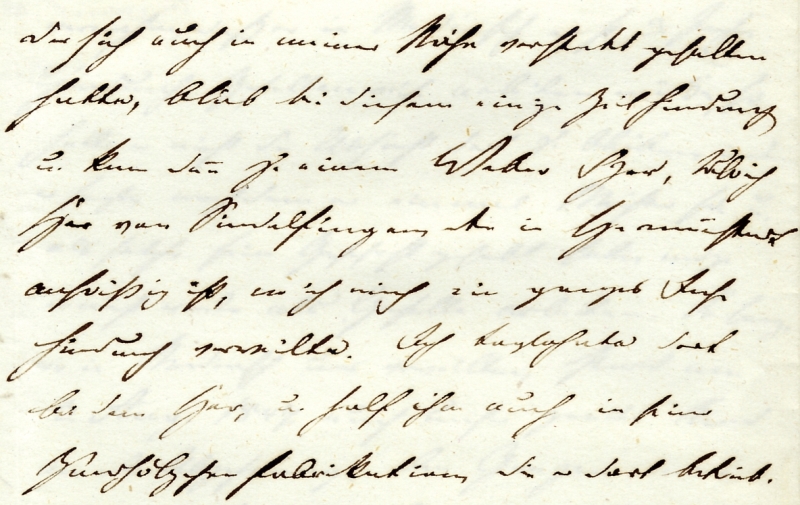 der sich auch in meiner Nähe versteckt gehalten
hatte, blieb bei diesem einige Zeit hindurch
u. kam dann zu einem Weber Eger, Ulrich
Eger von Sindelfingen der in Germünd
ansässig ist, wo ich mich ein ganzes Jahr
hindurch verweilte. Ich taglohnte dort
bei dem Eger, u. half ihm auch in seiner
Zündhölzchenfabrikation, die er dort betrieb.